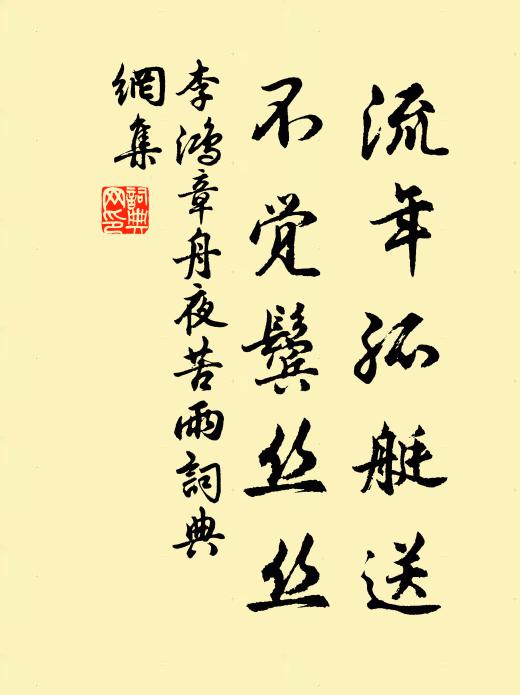 流年孤艇送
不觉鬓丝丝
李鸿章舟夜苦雨詞典
網集
詞典网印